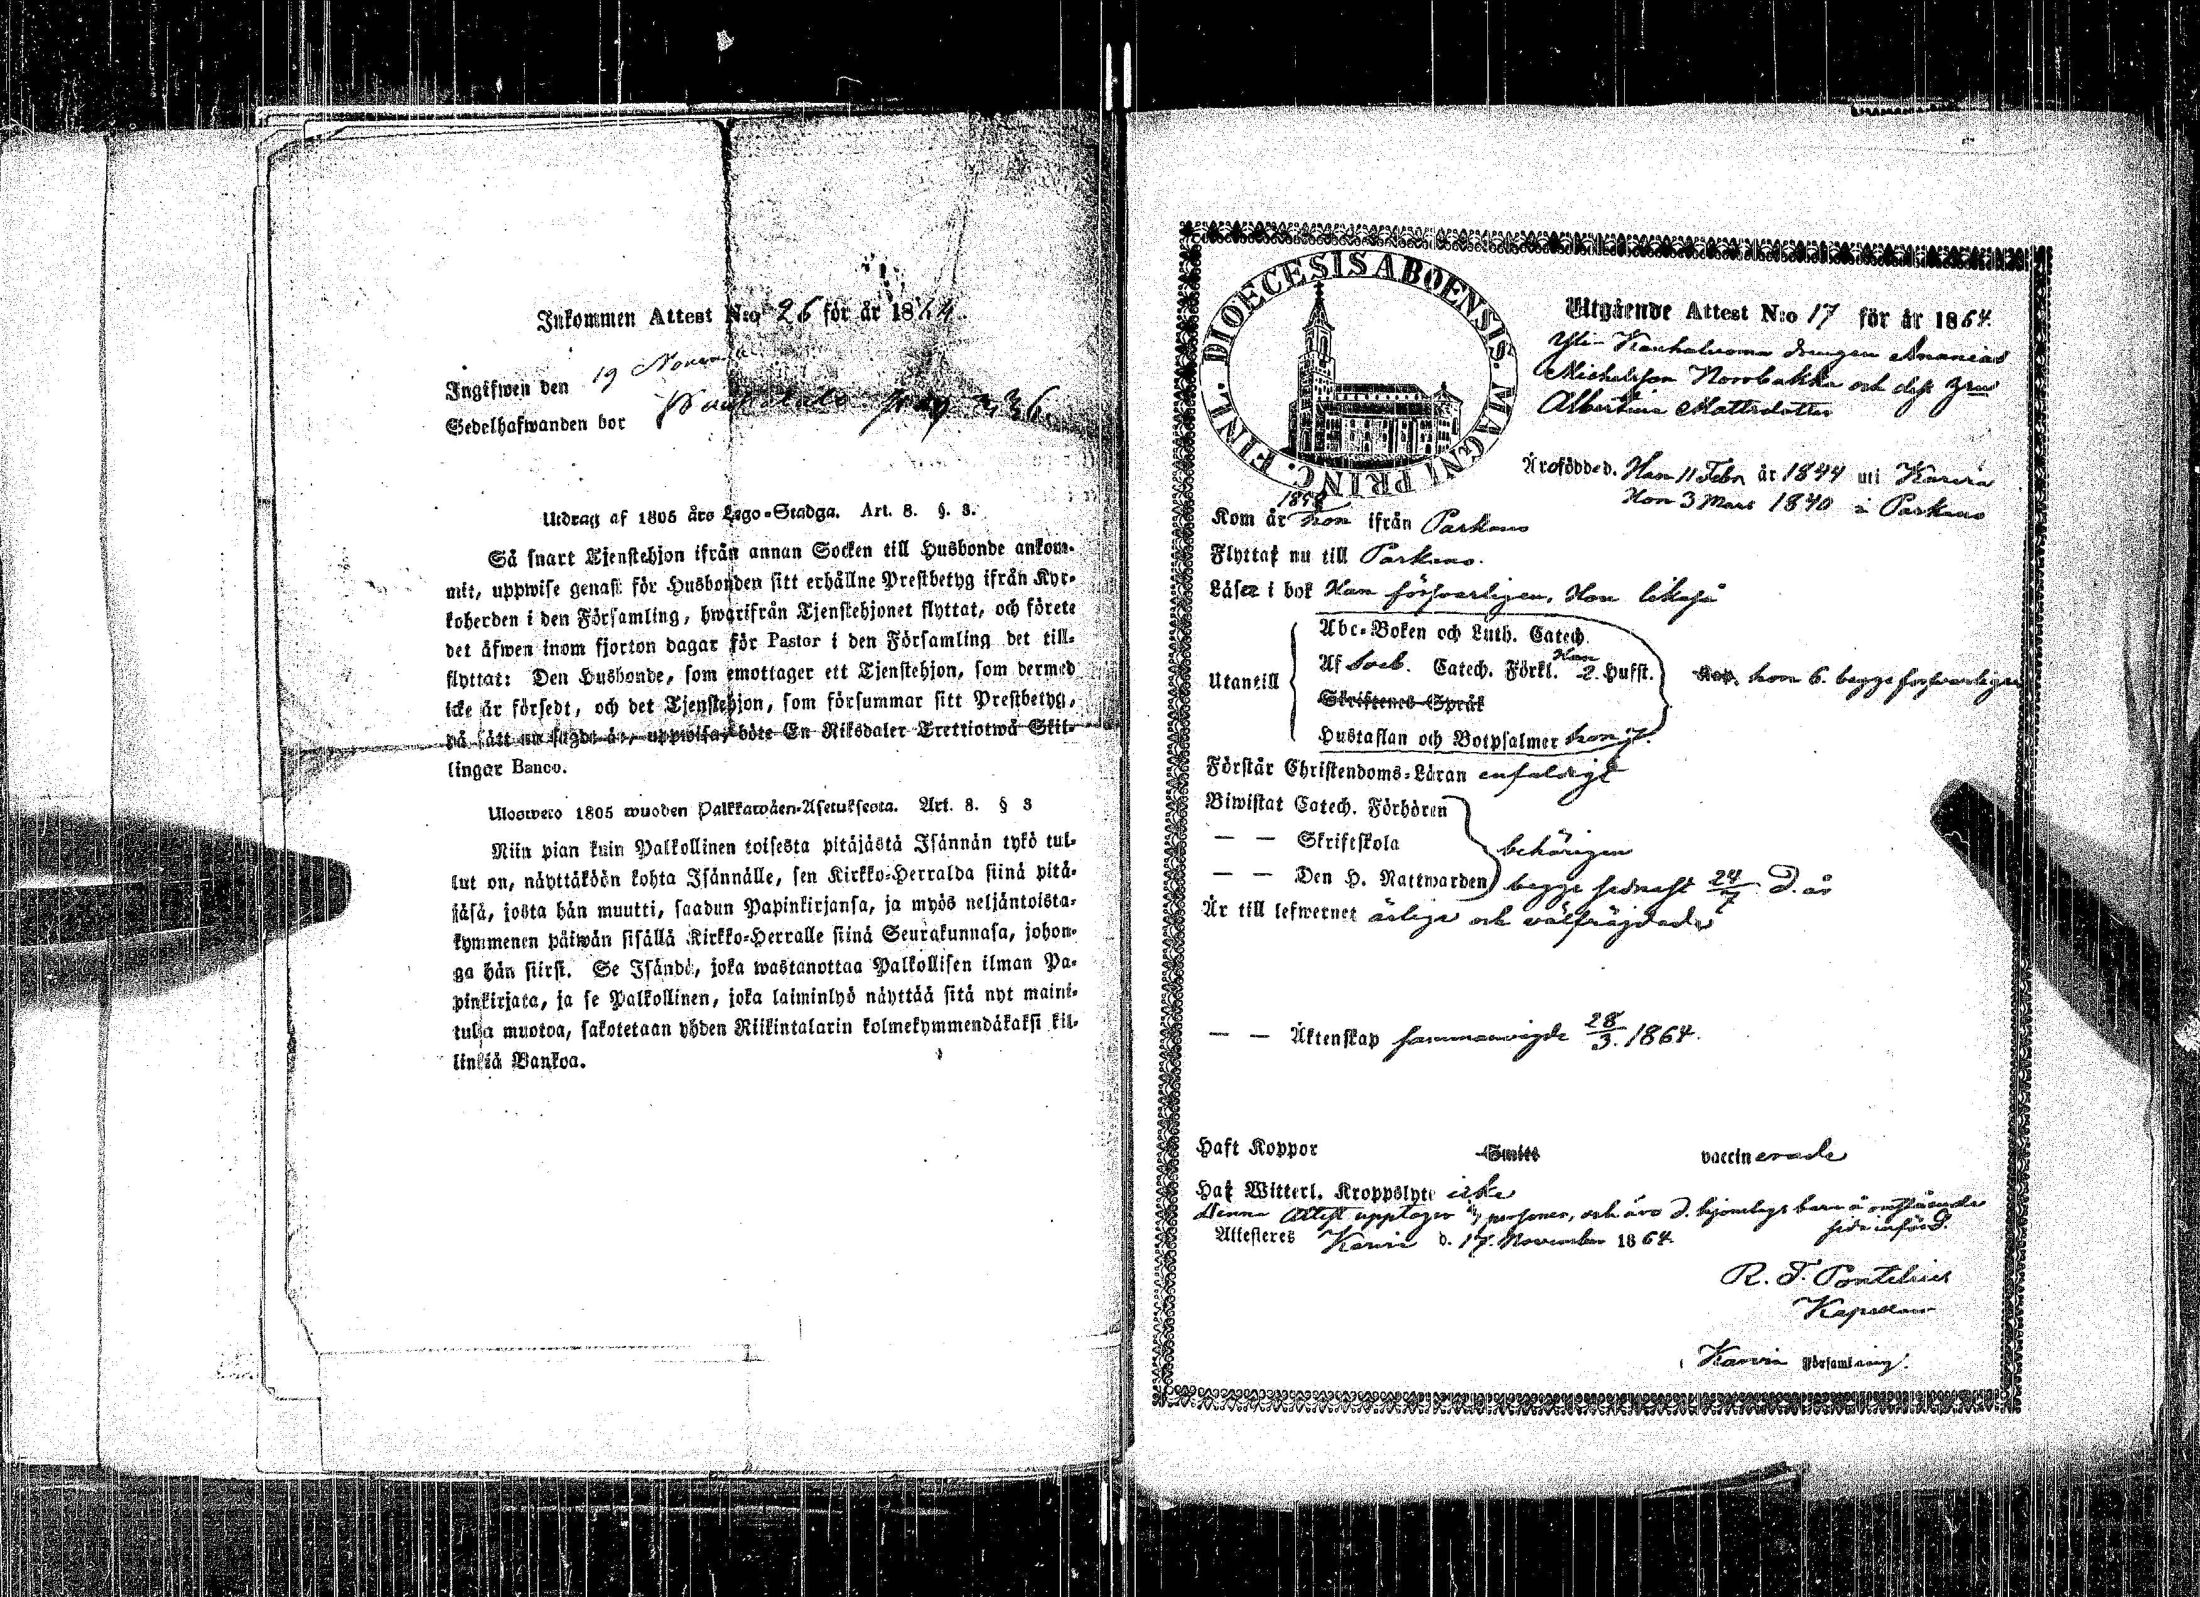 Inkommen Attest N:o 26 för år 1864.
Ingifwen den 19 November
Sedelhafwanden bor
Utdrag af 1805 års Lego-Stadga. Art. 8. §. 3.
Så snart Tjenstehjon ifrån annan Socken till Husbonde ankom-
mit, uppwise genast för Husbonden sitt erhållne Prestbetyg ifrån Kyr-
koherden i den Församling, hwarifrån Tjenstehjonet flyttat, och förete
det äfwen inom fjorton dagar för Pastor i den Församling det till-
flyttat: Den Husbonde, som emottager ett Tjenstehjon, som dermed
icke är försedt, och det Tjenstehjon, som försummar sitt Prestbetyg,
på sätt nu sagdt är, uppwisa, böte En Riksdaler Trettiotwå Skil-
lingar Banco.
Ulosweto 1805 wuoden Palkkawäen-Asetuksesta. Art. 8. § 3
Niin pian kuin Palkollinen toisesta pitäjästä Isännän tykö tul-
lut on, näyttäköön kohta Isännälle, sen Kirkko-Herralda siinä pitä-
jäsä, josta hän muutti, saadun Papinkirjansa, ja myös neljäntoista-
kymmenen päiwän sisällä Kirkko-Herralle siinä Seurakunnasa, johon-
ga hän siirsi. Se Isändä, joka wastanottaa Palkollisen ilman Pa-
pinkirjata, ja se Palkollinen, joka laiminlyö näyttää sitä nyt maini-
tulla muotoa, sakotetaan yhden Riikintalarin kolmekymmendäkaksi kil-
linkiä Bankoa.
DIOECESIS ABOENSIS. MAGNI PRINC. FINL.
Utgående Attest N:o 17 för år 1864.
Yli-Kauhaluoma drängen Ananias
Michelsson Norrbakka och dess hru
Albertina Mattsdotter
Äro född d. Han 11 Febr år 1844 uti Karvia
Hon 3 Mars 1840 i Parkano
1858
Kom år hon ifrån Parkano
Flyttar nu till Parkano.
Läser i bok Han försvarligen, Hon likaså
Utantill
Abc-Boken och Luth. Catech.
Af Sveb. Catech. Förkl. Han 2. Hufst. hon 6. begge försvarligen
Skriftenes Språk
Hustaflan och Botpsalmer hon 7.
Förstår Christendoms-Läran enfaldigt
Biwistat Catech. Förhören
— — Skriftskola behörigen
— — Den H. Nattwarden begge sednast 24/7 d. år
Är till lefwernet ärliga och välfräjdade
— — Äktenskap sammanvigde 28/3. 1864.
Haft Koppor Smitt vaccinerade
Har Witterl. Kroppslyte icke
Denna Attest upptager personer, och äro d. hjonelags barn å omstående
sida införd.
Attesteres Karvia d. 17. November 1864.
R. F. Pontelius
Kapellan
i Karvia Församling.